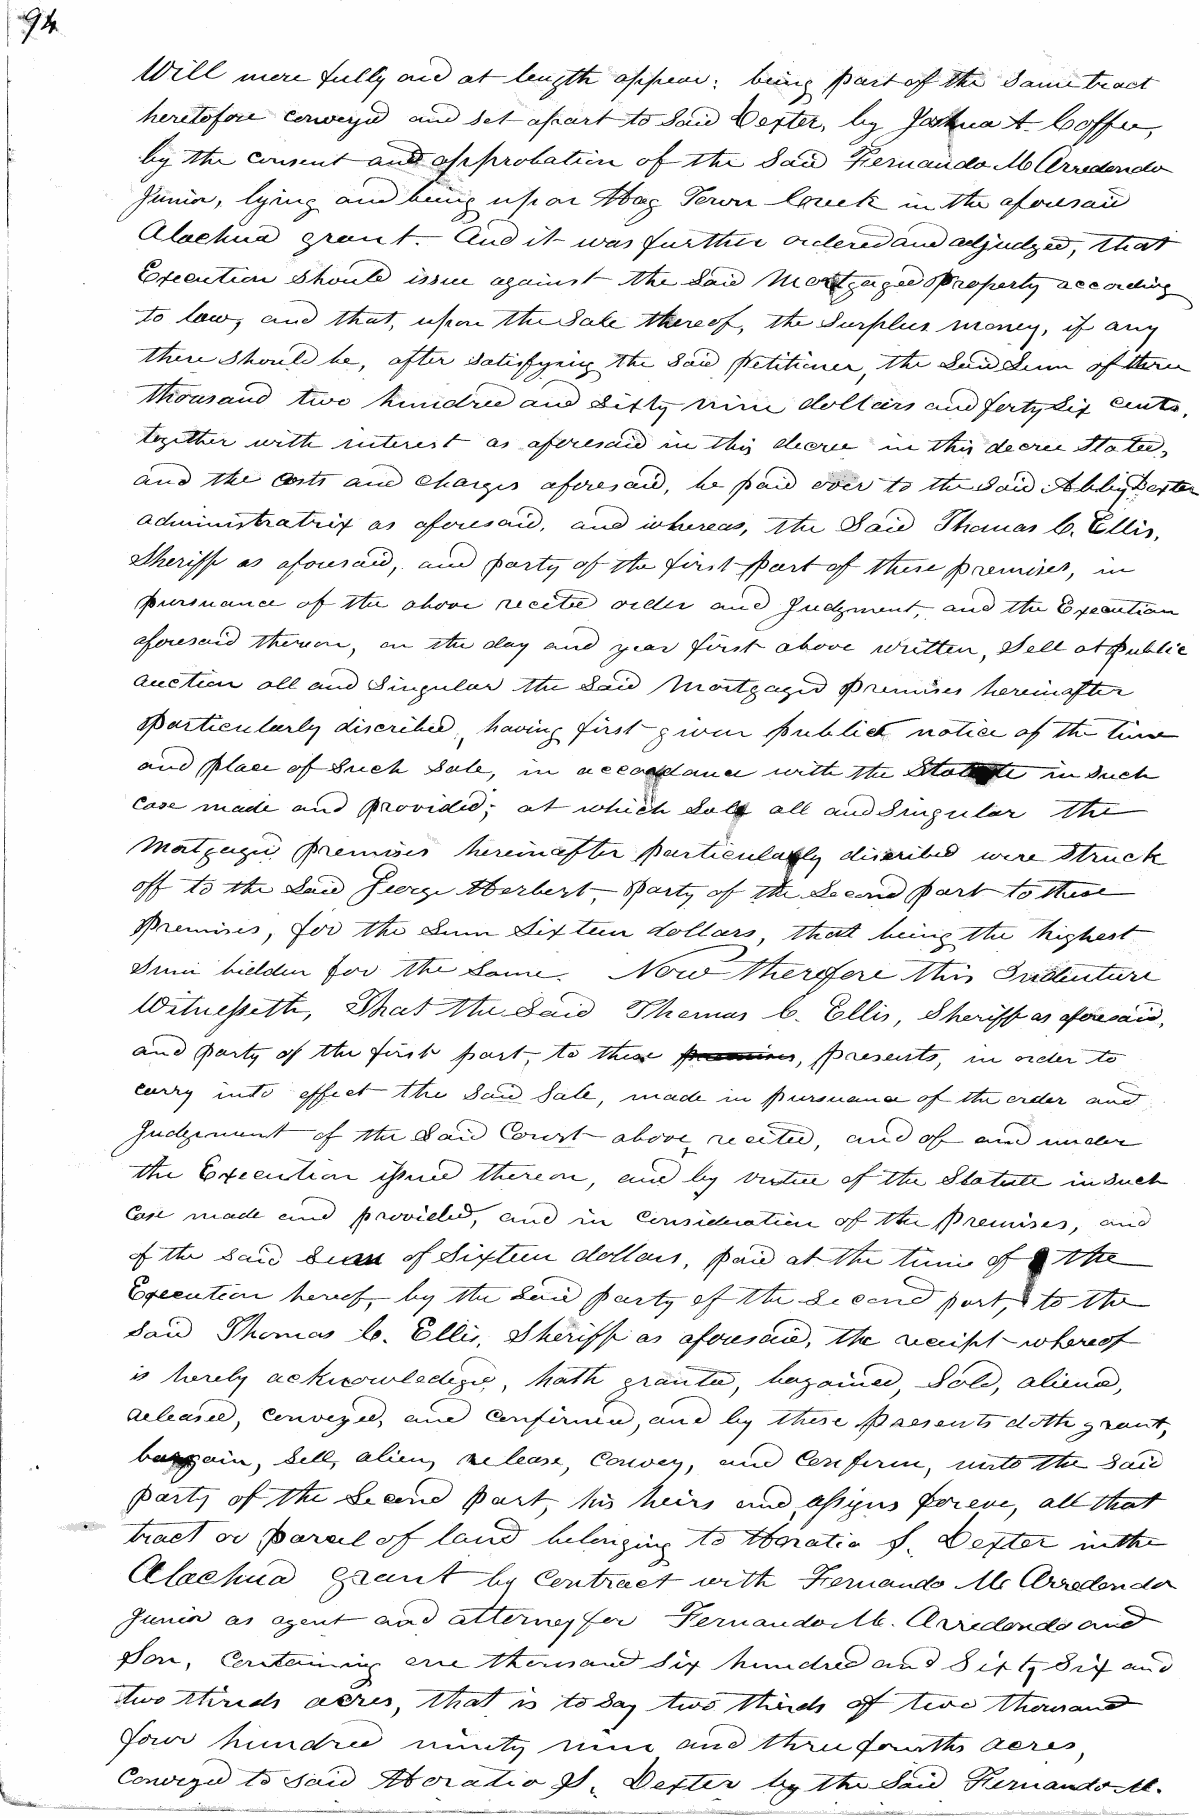 94
Will more fully and at length appear: being part of the same tract
heretofore conveyed and set apart to said Dexter, by Joshua A. Coffee,
by the consent and approbation of the said Fernando M Arredondo
Junior, lying and being upon Hog Town Creek in the aforesaid
Alachua grant. And it was further ordered and adjudged, that
Execution should issue against the said Mortgaged Property according
to law, and that, upon the sale thereof, the surplus money, if any
there should be, after satisfying the said Petitioner, the said sum of three
thousand two hundred and sixty nine dollars and forty six cents,
together with interest as aforesaid in this decree in this decree stated,
and the costs and charges aforesaid, be paid over to the said Abby Dexter
administratrix as aforesaid, and whereas, the said Thomas C. Ellis,
Sheriff as aforesaid, and party of the first part of these premises, in
pursuance of the above recited order and Judgment, and the Execution
aforesaid thereon, on the day and year first above written, Sell at Public
auction all and singular the said Mortgaged premises hereinafter
particularly discribed, having first given public notice of the time
and place of such sale, in accordance with the Statute in such
case made and provided; at which sale all and singular the
Mortgaged premises hereinafter particularly discribed were struck
off to the said George Herbert, Party of the Second part to these
Premises, for the sum sixteen dollars, that being the highest
sum bidden for the same. Now therefore this Indenture
Witnesseth, That the said Thomas C. Ellis, Sheriff as aforesaid,
and party of the first part, to these premises, presents, in order to
carry into effect the said sale, made in pursuance of the order and
Judgement of the said Court above recited, and of and under
the Execution issued thereon, and by virtue of the Statute in such
case made and provided, and in consideration of the Premises, and
of the said sum of Sixteen dollars, paid at the time of the
Execution hereof, by the said party of the second part, to the
said Thomas C. Ellis, Sheriff as aforesaid, the receipt whereof
is hereby acknowledged, hath granted, bagained, Sold, aliend,
released, conveyed, and confirmed, and by these Presents doth grant,
bargain, Sell, alien, release, convey, and confirm, unto the said
party of the second part, his heirs and assigns foreve, all that
tract or parcel of land belonging to Horatio S. Dexter in the
Alachua grant by contract with Fernando M Arredondo
Junior as agent and attorney for Fernando M. Arredondo and
Son, containing one thousand six hundred and sixty six and
two thirds acres, that is to say two thirds of two thousand
four hundred ninety nine and three fourths acres,
Conveyed to said Horatio S. Dexter by the said Fernando M.